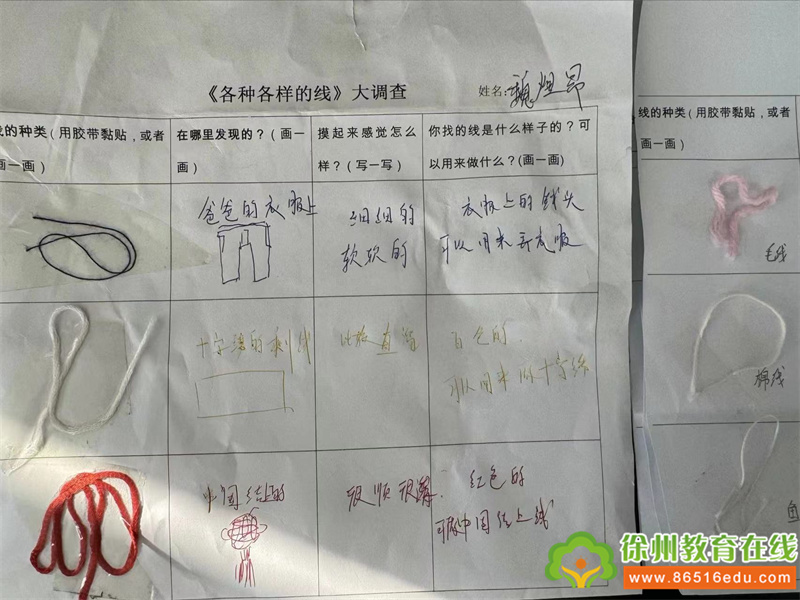 《各种各样的线》大调查
姓名:
的种类（用胶带黏贴，或者
画一画）
在哪里发现的？（画一
画）
摸起来感觉怎么
样？（写一写）
你找的线是什么样子的？可
以用来做什么？(画一画)
爸爸的衣服上
细细的
软软的
衣服上的线头
可以用来弄衣服
比较直
白色的
可以用来做十字绣
中国结的
很顺很滑
红色的
可做中国结上线
线的种类（用胶带黏贴，或者
画一画）
毛线
棉线
鱼
徐州教育在线
www.86516edu.com